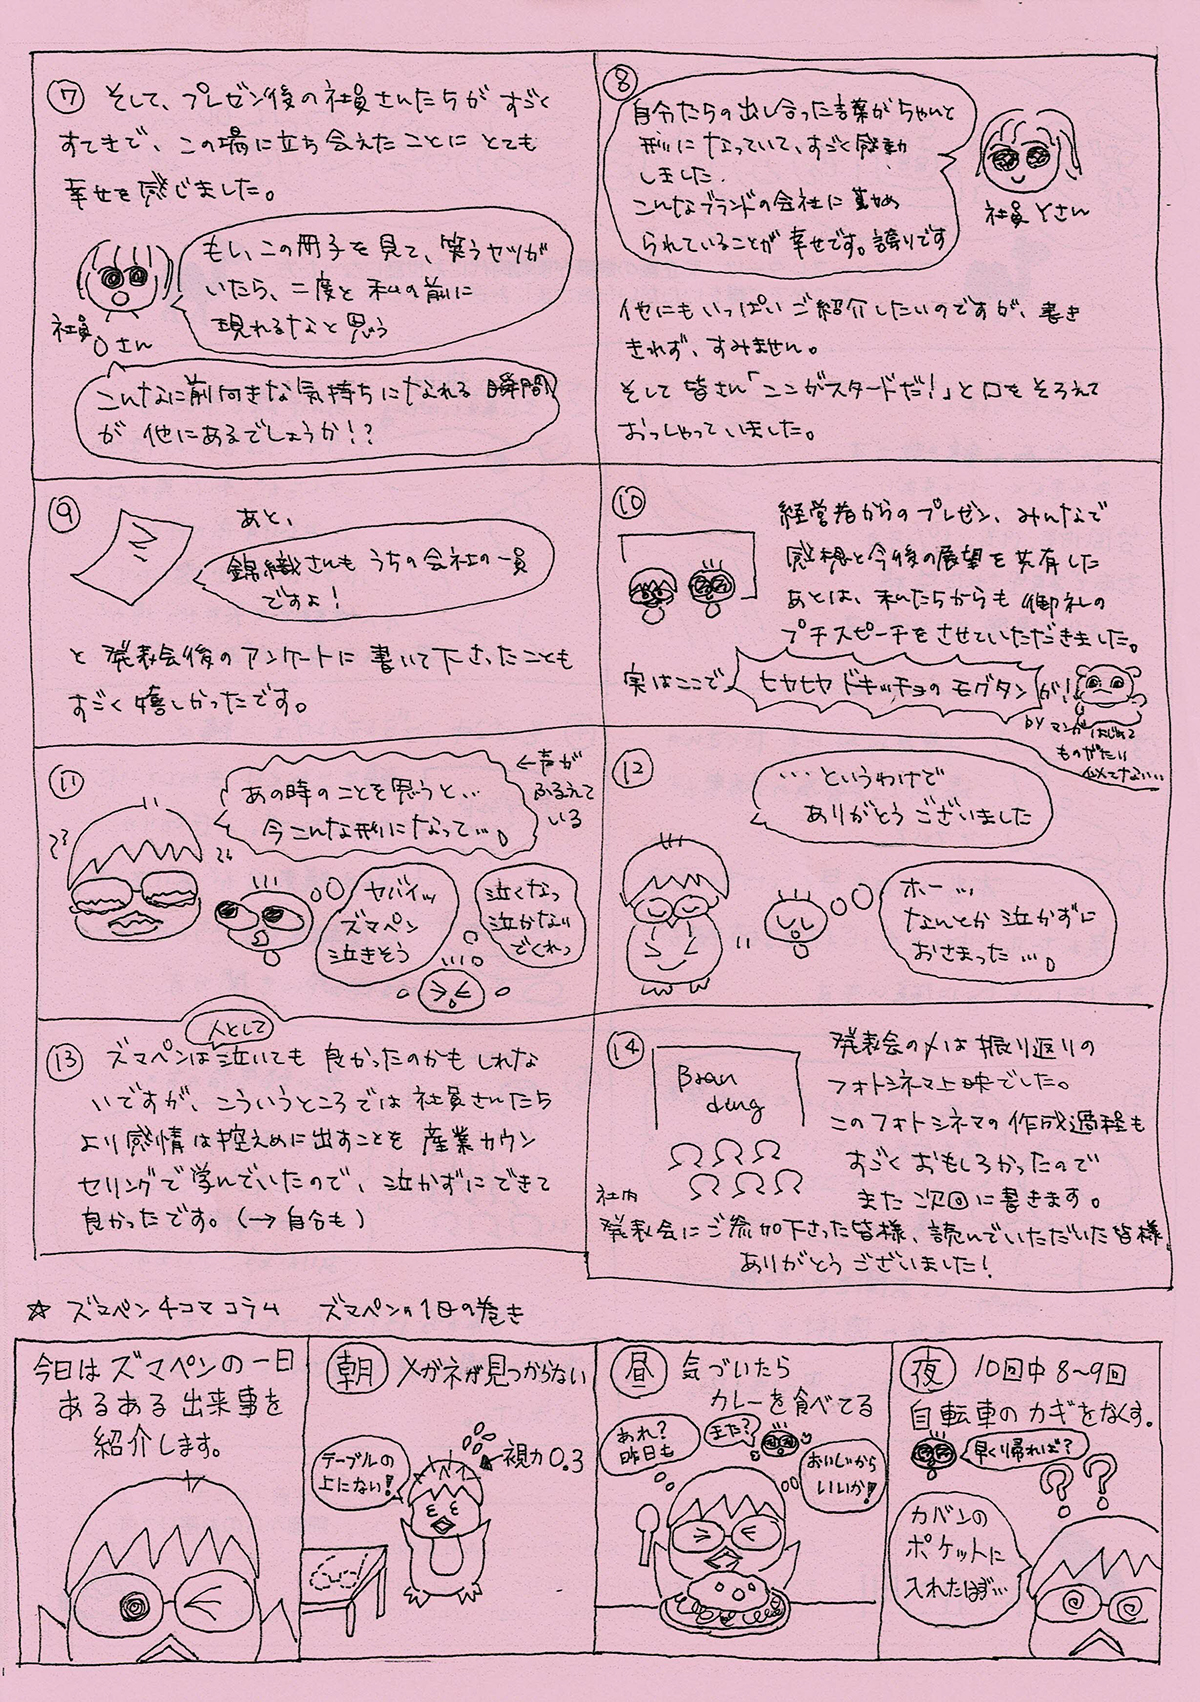 ⑦ そして、プレゼン後の社員さんたちがすごく
すてきで、この場に立ち会えたことにとても
幸せを感じました。
もし、この冊子を見て、笑うヤツが
いたら、二度と私の前に
現れるなと思う
社員
Oさん
こんなに前向きな気持ちになれる瞬間
が他にあるでしょうか!?
⑧
自分たちの出し合った言葉がちゃんと
形になっていて、すごく感動
しました。
こんなブランドの会社に勤め
られていることが幸せです。誇りです
社員Yさん
他にもいっぱいご紹介したいのですが、書き
きれず、すみません。
そして皆さん「ここがスタードだ!」と口をそろえて
おっしゃっていました。
⑨
あと、
錦織さんもうちの会社の一員
ですよ!
と発表会後のアンケートに書いて下さったことも
すごく嬉しかったです。
⑩
経営者からのプレゼン、みんなで
感想と今後の展望を共有した
あとは、私たちからも御礼の
プチスピーチをさせていただきました。
実はここで
ヒヤヒヤドキッチョのモグタン
が!
by マンガはじめて
ものがたり
似てない…
⑪
あの時のことを思うと…
今こんな形になって…。
←声が
ふるえて
いる
ヤバイッ
ズマペン
泣きそう
泣くなっ
泣かない
でくれっ
⑫
…というわけで
ありがとうございました
ホーッ
なんとか泣かずに
おさまった…。
人として
⑬ ズマペンは泣いても良かったのかもしれな
いですが、こういうところでは社員さんたち
より感情は控えめに出すことを産業カウン
セリングで学んでいたので、泣かずにできて
良かったです。(→自分も)
⑭
Bran
ding
発表会の〆は振り返りの
フォトシネマ上映でした。
このフォトシネマの作成過程も
すごくおもしろかったので
また次回に書きます。
社内
発表会にご参加下さった皆様、読んでいただいた皆様
ありがとうございました!
☆ ズマペン4コマコラム ズマペンの1日の巻き
今日はズマペンの一日
あるある出来事を
紹介します。
朝 メガネが見つからない
テーブルの
上にない!
視力0.3
昼 気づいたら
カレーを食べてる
あれ?
昨日も
また?
おいしいから
いいか!
夜 10回中8~9回
自転車のカギをなくす。
早く帰れば?
カバンの
ポケットに
入れたはず…